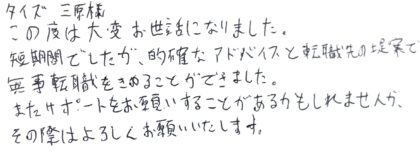 タイズ 三原様
この度は大変お世話になりました。
短期間でしたが、的確なアドバイスと転職先の提案で
無事転職をきめることができました。
またサポートをお願いすることがあるかもしれませんが、
その際はよろしくお願いいたします。